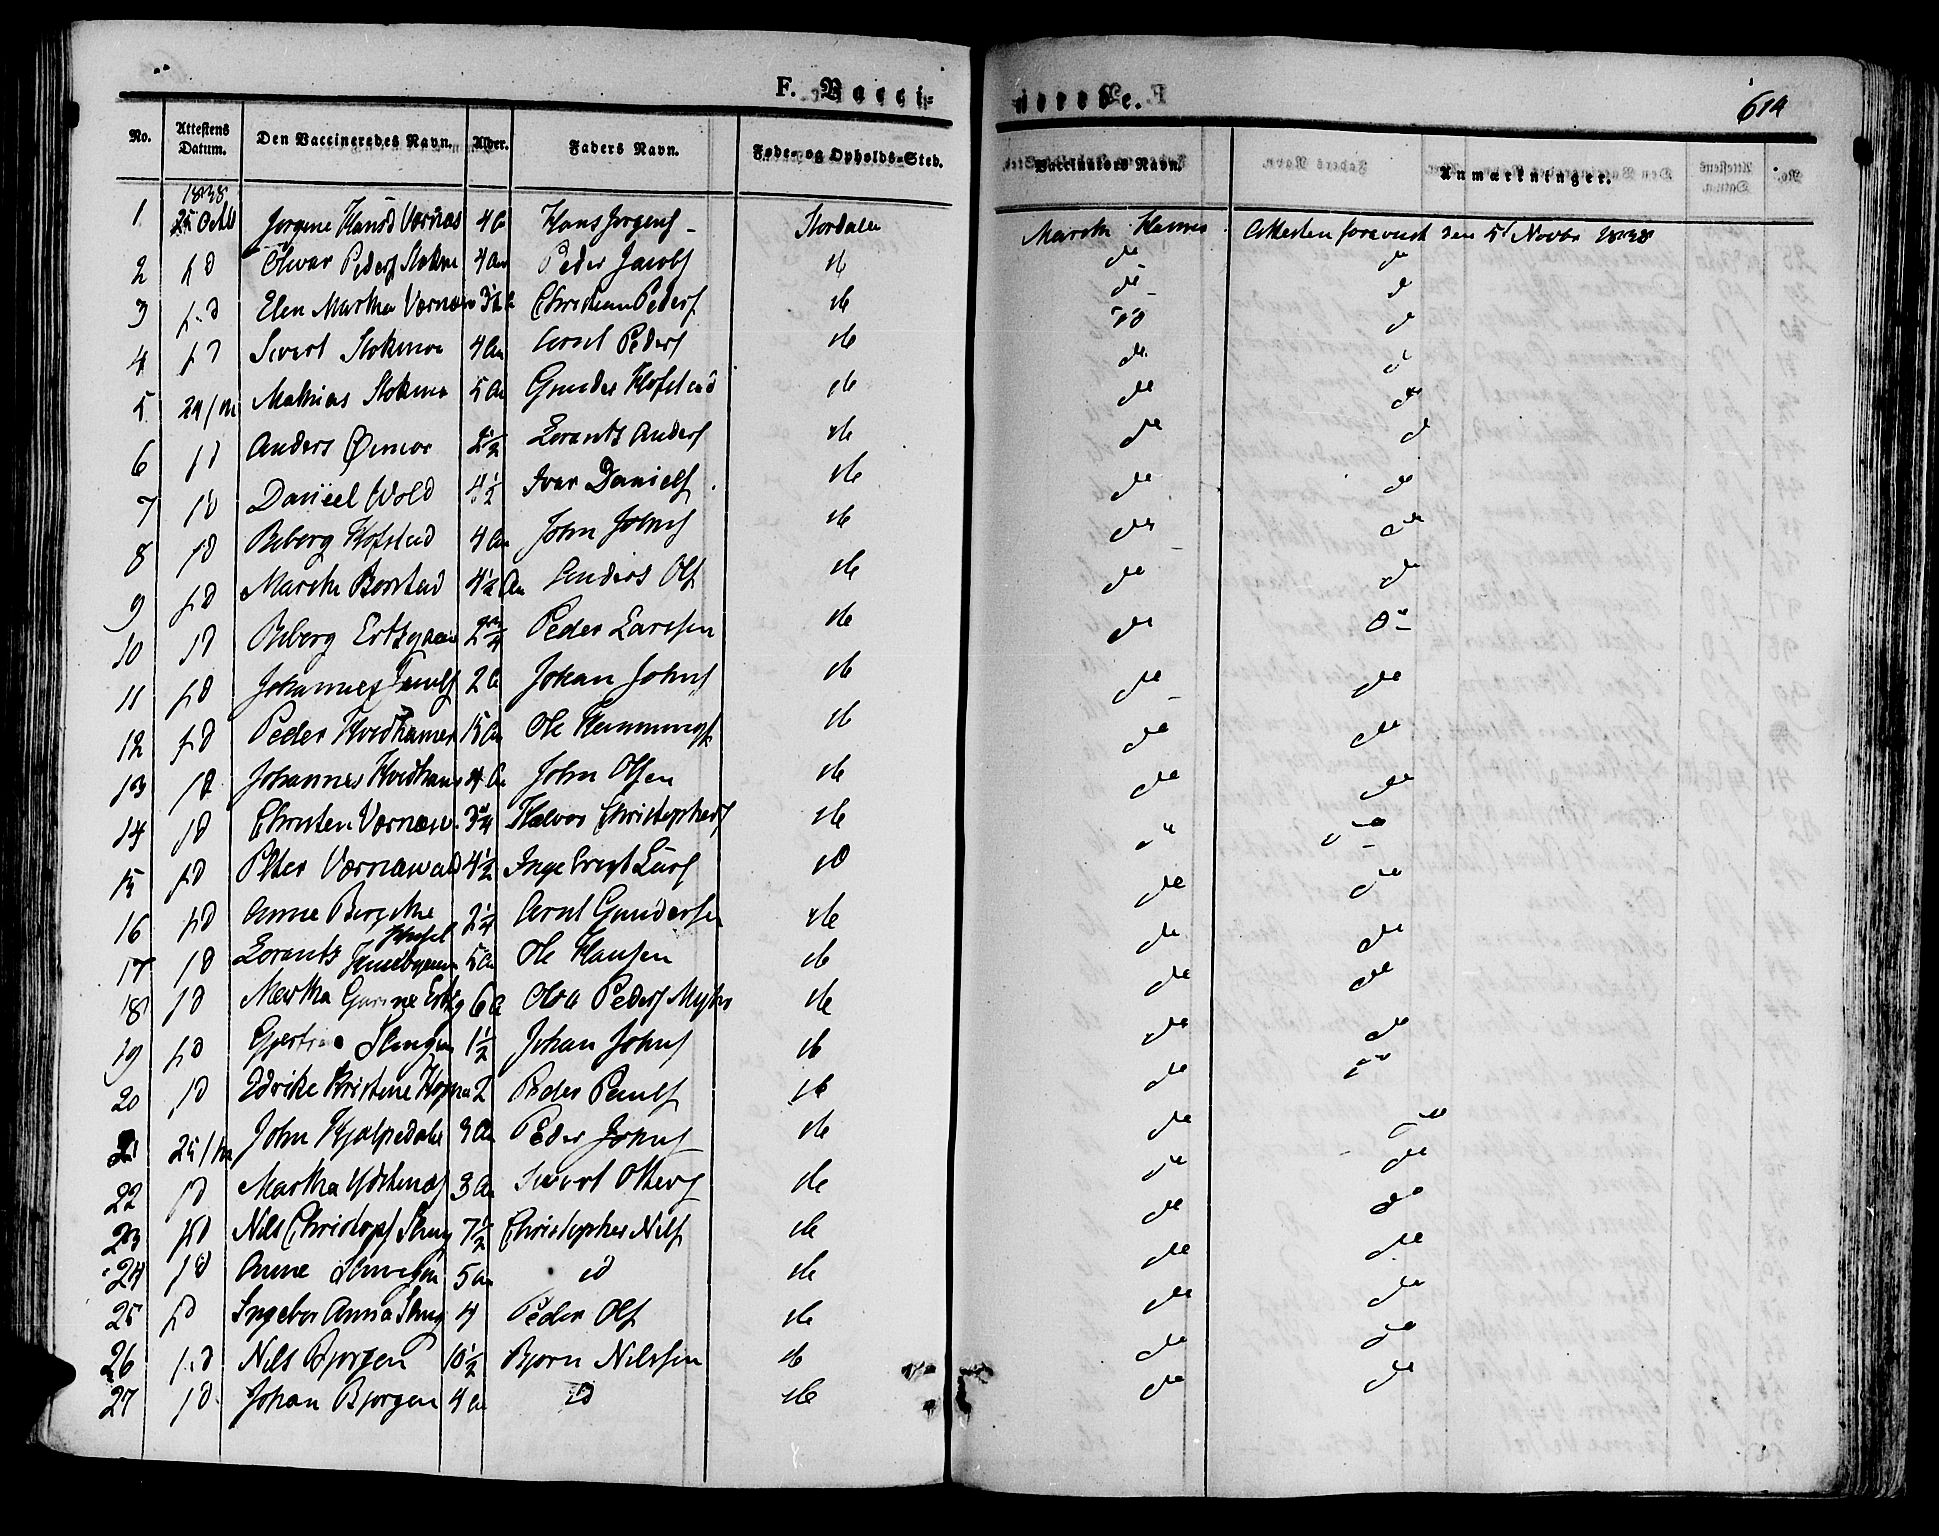 F. Vacci-
nerede.
614
No. Attestens Datum. Den Vaccineredes Navn. Alder. Faders Navn. Føde- og Opholds-Sted. Vaccinators Navn. Anmærkninger.
1838
1 25 Octb Jørgine Hansd Værnæs 4 A Hans Jørgens Stordalen Marcha Attesten forevist den 5 Novbr 1838
2 id Peders Stokmo 4 Aar Peder Jacobs do do do
3 id Elen Martha Værnæs 3½ A Christian Peders do do do
4 id Sivert Stokmoe 4 Aar Arnt Peders do do do
5 24/10 Mathias Stokmo 5 Aar Gunder Hofstad do do do
6 id Anders Øimoe 2½ Lorents Anders do do do
7 id Daniel Wold 4½ Ivar Daniels do do do
8 id Beberg Hofstad 4 Aar John Johns do do do
9 id Marcha Borstad 4½ Aar Anders Ols do do do
10 id Beberg Ertsgaard 2¼ Peder Larssen do do do
11 id Johannes 2 A Johan Johns do do do
12 id Peder Hvedhamer 15 Aar Ole Hemmings do do do
13 id Johannes Hvedham 4 Aar John Olsen do do do
14 id Christen Værnæsv. 3¼ Halvor Christophers do do
15 id Peter Værnæswald 4½ Ingebregt Lars id do do
16 id Anne Beregithe 2¼ Arnt Gundersen do do do
Husel
17 id Lorents Husebyeaun 5 Aar Ole Hansen do do do
18 id Martha Gurine Ertsg 6 A Ole Peders Myhr do do do
19 id Gjertine Slungen 1½ Johan Johns do do
20 id Edrike Kristine 2 Peder Pauls do do do
21 25/10 John Hjælpedale 3 Aar Peder Johns do do do
22 id Martha 3 Aar Sivert do do do
23 id Nils Christops Slung 7½ Christopher Nils do do do
24 id Anne Slungen 5 Aar id do do do
25 id Ingebor Anna Slung 4 Peder Ols do do do
26 id Nils Bjørgen 10½ Bjørn Nilssen do do do
27 id Johan Bjørgen 4 Aar id do do do